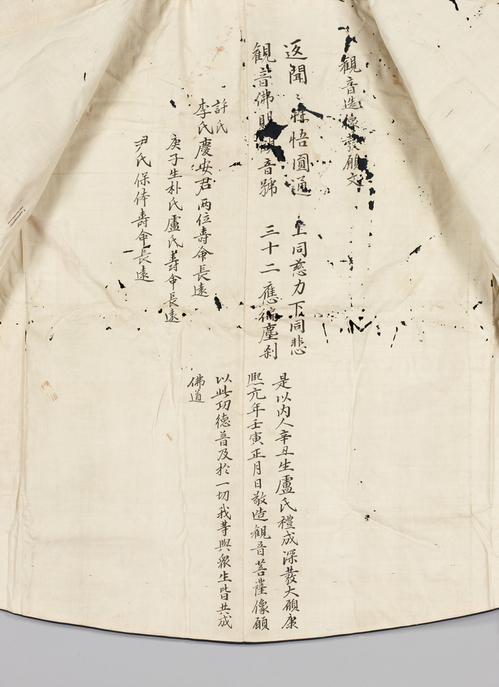 観音造像發願文
返聞 悟圓通 上同慈力下同悲
観音佛 音號 三十二應徧塵刹
許氏
李氏慶安君兩位壽命長遠
庚子生朴氏盧氏壽命長遠
尹氏保体壽命長遠
是以內人辛丑生盧氏禮成深發大願康
熙元年壬寅正月日敬造観音菩薩像願
以此功德普及於一切我等與衆生皆共成
佛道